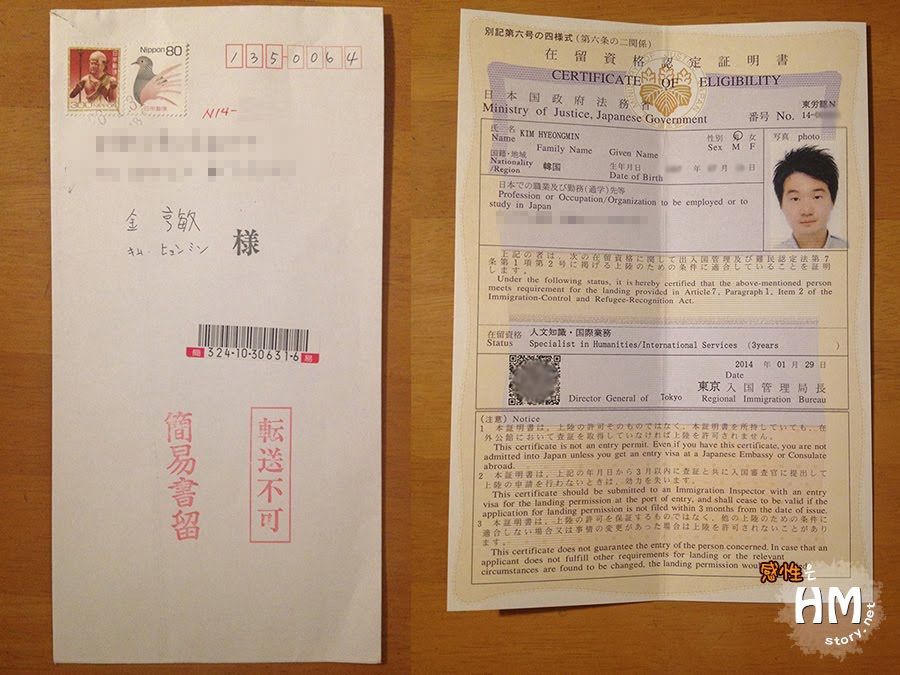 日本郵便
300
Nippon 80
日本郵便
135 0064
N14-
金 亨敏
キム・ヒョンミン
様
簡 324-10-30631-6 易
簡易書留
転送不可
別記第六号の四様式(第六条の二関係)
在留資格認定証明書
CERTIFICATE OF ELIGIBILITY
日本国政府法務省
東労認N
Ministry of Justice, Japanese Government
番号 No. 14-
氏 名 KIM HYEONGMIN
Name
Family Name Given Name
性別 男 女
Sex M F
写真 photo
国籍・地域
Nationality 韓国
/Region
生年月日 年 月 日
Date of Birth
日本での職業及び勤務(通学)先等
Profession or Occupation/Organization to be employed or to
study in Japan
上記の者は、次の在留資格に関して出入国管理及び難民認定法第7
条第1項第2号に掲げる上陸のための条件に適合していることを証明
します。
Under the following status, it is hereby certified that the above-mentioned person
meets requirement for the landing provided in Article 7, Paragraph 1, Item 2 of the
Immigration-Control and Refugee-Recognition Act.
在留資格 人文知識・国際業務
Status Specialist in Humanities/International Services (3years )
2014 年 01 月 29 日
Date
東京入国管理局長
Director General of Tokyo Regional Immigration Bureau
(注意) Notice
1 本証明書は、上陸の許可そのものではなく、本証明書を所持していても、在
外公館において査証を取得していなければ上陸を許可されません。
This certificate is not an entry permit. Even if you have this certificate, you are not
admitted into Japan unless you get an entry visa at a Japanese Embassy or Consulate
abroad.
2 本証明書は、上記の年月日から3月以内に査証と共に入国審査官に提出して
上陸の申請を行わないときは、効力を失います。
This certificate should be submitted to an Immigration Inspector with an entry
visa for the landing permission at the port of entry, and shall cease to be valid if the
application for landing permission is not filed within 3 months from the date of issue.
3 本証明書は、上陸の許可を保証するものではなく、他の上陸のための条件に
適合しない場合又は事情の変更があった場合は上陸を許可されないことがあり
ます。
This certificate does not guarantee the entry of the person concerned. In case that an
applicant does not fulfill other requirements for landing or the relevant
circumstances are found to be changed, the landing permission
感性と
HM
story.net